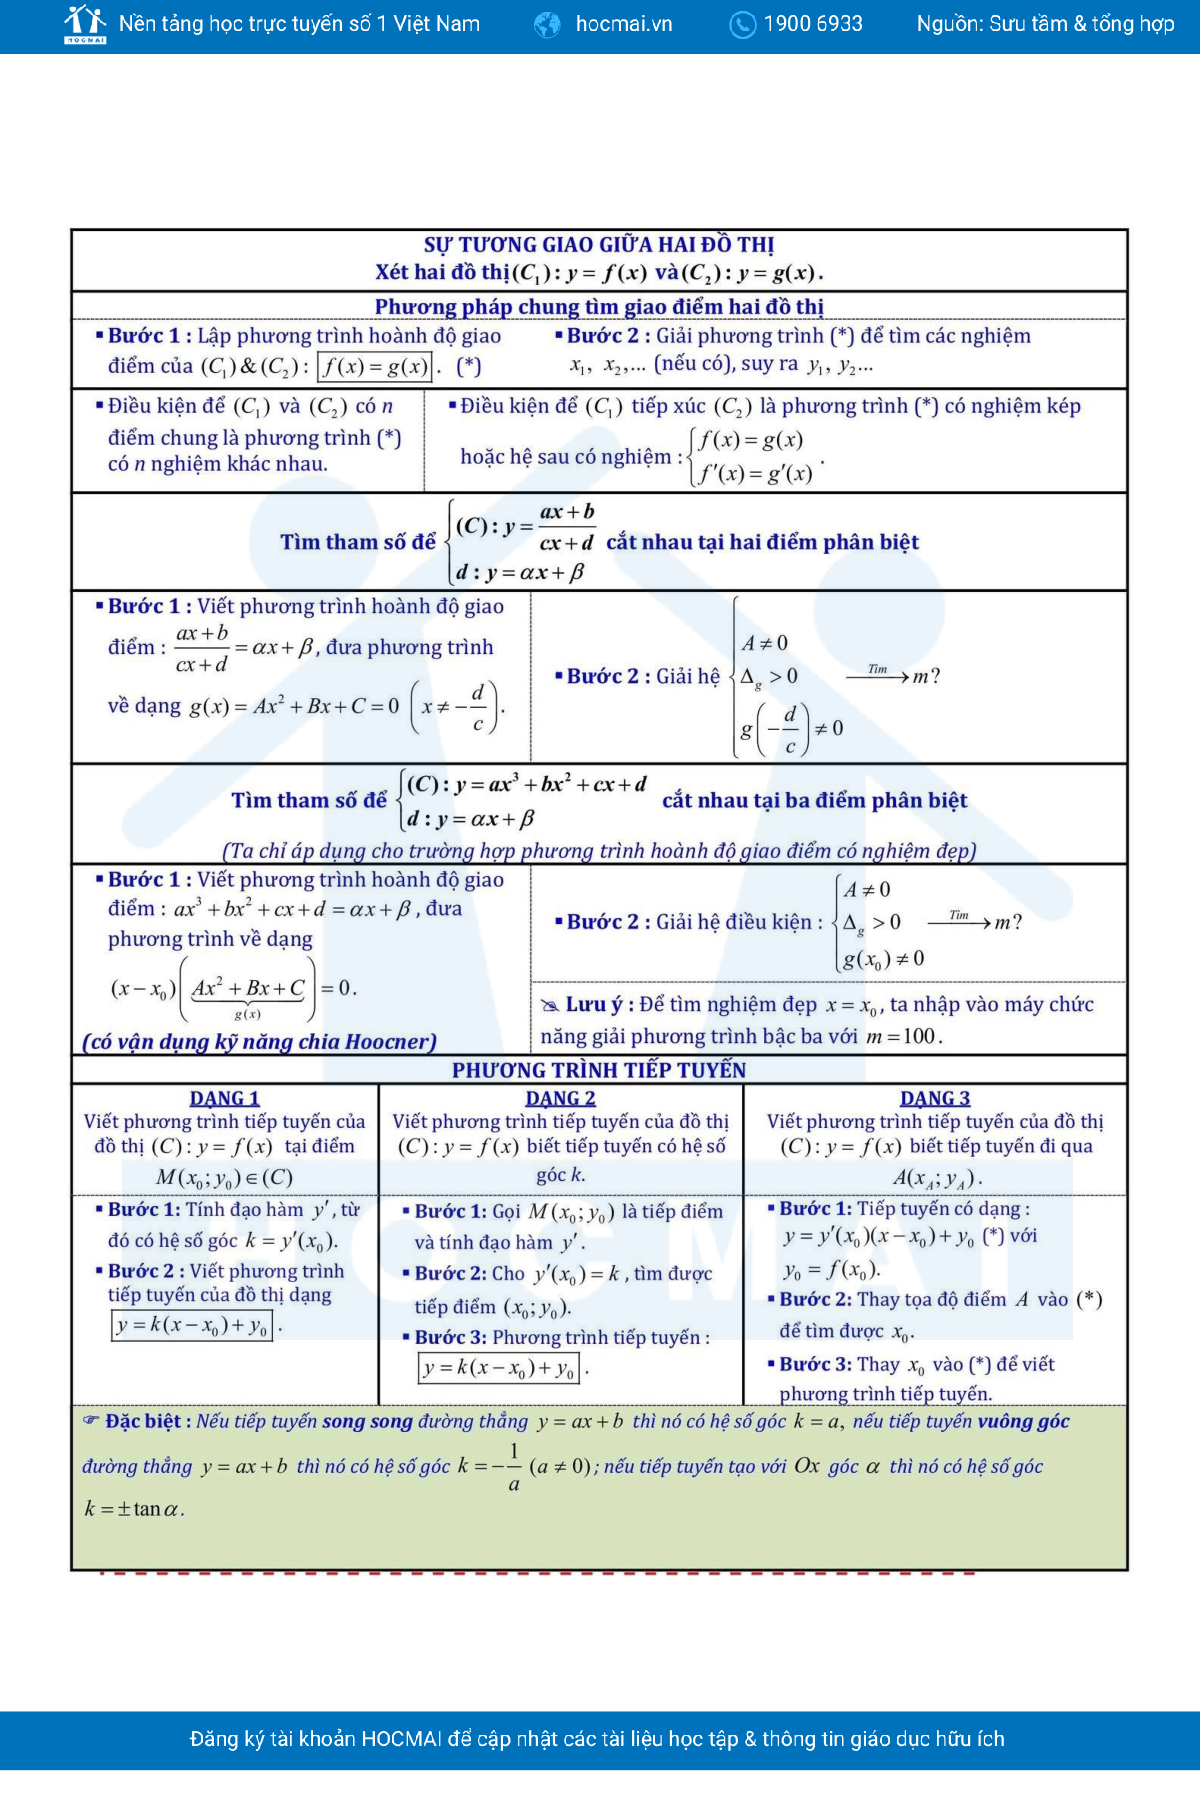 HOCMAI
Nền tảng học trực tuyến số 1 Việt Nam
hocmai.vn
1900 6933
Nguồn: Sưu tầm & tổng hợp
SỰ TƯƠNG GIAO GIỮA HAI ĐỒ THỊ
Xét hai đồ thị (C₁) : y = f(x) và (C₂) : y = g(x).
Phương pháp chung tìm giao điểm hai đồ thị
▪ Bước 1 : Lập phương trình hoành độ giao
điểm của (C₁) & (C₂) : f(x) = g(x). (*)
▪ Bước 2 : Giải phương trình (*) để tìm các nghiệm
x₁, x₂,... (nếu có), suy ra y₁, y₂...
▪ Điều kiện để (C₁) và (C₂) có n
điểm chung là phương trình (*)
có n nghiệm khác nhau.
▪ Điều kiện để (C₁) tiếp xúc (C₂) là phương trình (*) có nghiệm kép
hoặc hệ sau có nghiệm : { f(x) = g(x)
f′(x) = g′(x) .
Tìm tham số để { (C) : y = (ax + b)/(cx + d)
d : y = αx + β cắt nhau tại hai điểm phân biệt
▪ Bước 1 : Viết phương trình hoành độ giao
điểm : (ax + b)/(cx + d) = αx + β, đưa phương trình
về dạng g(x) = Ax² + Bx + C = 0 (x ≠ −d/c).
▪ Bước 2 : Giải hệ { A ≠ 0
Δg > 0 Tìm → m?
g(−d/c) ≠ 0
Tìm tham số để { (C) : y = ax³ + bx² + cx + d
d : y = αx + β cắt nhau tại ba điểm phân biệt
(Ta chỉ áp dụng cho trường hợp phương trình hoành độ giao điểm có nghiệm đẹp)
▪ Bước 1 : Viết phương trình hoành độ giao
điểm : ax³ + bx² + cx + d = αx + β, đưa
phương trình về dạng
(x − x₀)(Ax² + Bx + C) = 0.
g(x)
(có vận dụng kỹ năng chia Hoocner)
▪ Bước 2 : Giải hệ điều kiện : { A ≠ 0
Δg > 0 Tìm → m?
g(x₀) ≠ 0
✎ Lưu ý : Để tìm nghiệm đẹp x = x₀, ta nhập vào máy chức
năng giải phương trình bậc ba với m = 100.
PHƯƠNG TRÌNH TIẾP TUYẾN
DẠNG 1
Viết phương trình tiếp tuyến của
đồ thị (C) : y = f(x) tại điểm
M(x₀; y₀) ∈ (C)
DẠNG 2
Viết phương trình tiếp tuyến của đồ thị
(C) : y = f(x) biết tiếp tuyến có hệ số
góc k.
DẠNG 3
Viết phương trình tiếp tuyến của đồ thị
(C) : y = f(x) biết tiếp tuyến đi qua
A(x_A; y_A).
▪ Bước 1: Tính đạo hàm y′, từ
đó có hệ số góc k = y′(x₀).
▪ Bước 2 : Viết phương trình
tiếp tuyến của đồ thị dạng
y = k(x − x₀) + y₀.
▪ Bước 1: Gọi M(x₀; y₀) là tiếp điểm
và tính đạo hàm y′.
▪ Bước 2: Cho y′(x₀) = k, tìm được
tiếp điểm (x₀; y₀).
▪ Bước 3: Phương trình tiếp tuyến :
y = k(x − x₀) + y₀.
▪ Bước 1: Tiếp tuyến có dạng :
y = y′(x₀)(x − x₀) + y₀ (*) với
y₀ = f(x₀).
▪ Bước 2: Thay tọa độ điểm A vào (*)
để tìm được x₀.
▪ Bước 3: Thay x₀ vào (*) để viết
phương trình tiếp tuyến.
☞ Đặc biệt : Nếu tiếp tuyến song song đường thẳng y = ax + b thì nó có hệ số góc k = a, nếu tiếp tuyến vuông góc
đường thẳng y = ax + b thì nó có hệ số góc k = −1/a (a ≠ 0); nếu tiếp tuyến tạo với Ox góc α thì nó có hệ số góc
k = ± tan α.
HOCMAI
Đăng ký tài khoản HOCMAI để cập nhật các tài liệu học tập & thông tin giáo dục hữu ích